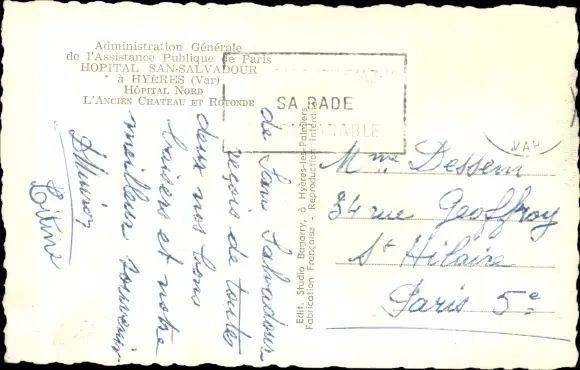 Administration Générale
de l'Assistance Publique de Paris
HOPITAL SAN-SALVADOUR
à HYÈRES (Var)
HÔPITAL NORD
L'ANCIEN CHATEAU ET ROTONDE
SA RADE
VAR
de San Salvadour
reçois de toute
deux nos bons
baisers et notre
meilleur souvenir
Titine
Edit. Studio Bagarry, à Hyères-les-Palmiers
Fabrication Française - Reproduction Interdite
Mme Dessem
34 rue Geoffroy
St Hilaire
Paris 5e